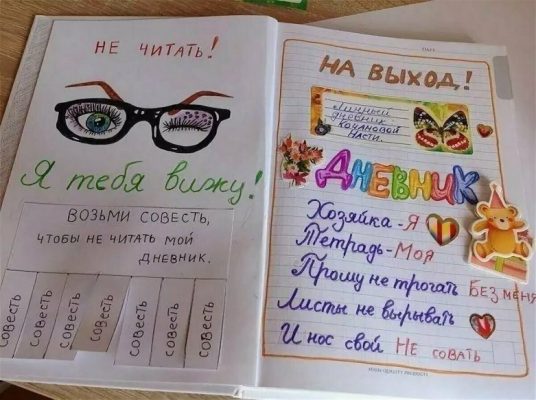 НЕ ЧИТАТЬ!
Я тебя вижу!
ВОЗЬМИ СОВЕСТЬ,
ЧТОБЫ НЕ ЧИТАТЬ МОЙ
ДНЕВНИК.
СОВЕСТЬ
СОВЕСТЬ
СОВЕСТЬ
СОВЕСТЬ
СОВЕСТЬ
СОВЕСТЬ
СОВЕСТЬ
DATE
НА ВЫХОД!
Личный
дневник
КОЧАНОВОЙ
НАСТИ.
ДНЕВНИК
Хозяйка-Я
Тетрадь-Моя
Прошу не трогать Без меня
Листы не вырывать
И нос свой НЕ СОВАТЬ
HIGH QUALITY PRODUCTS